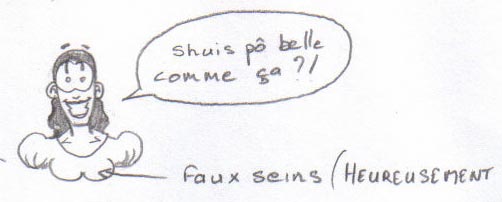 shuis pô belle
comme ça ?!
Faux seins (HEUREUSEMENT